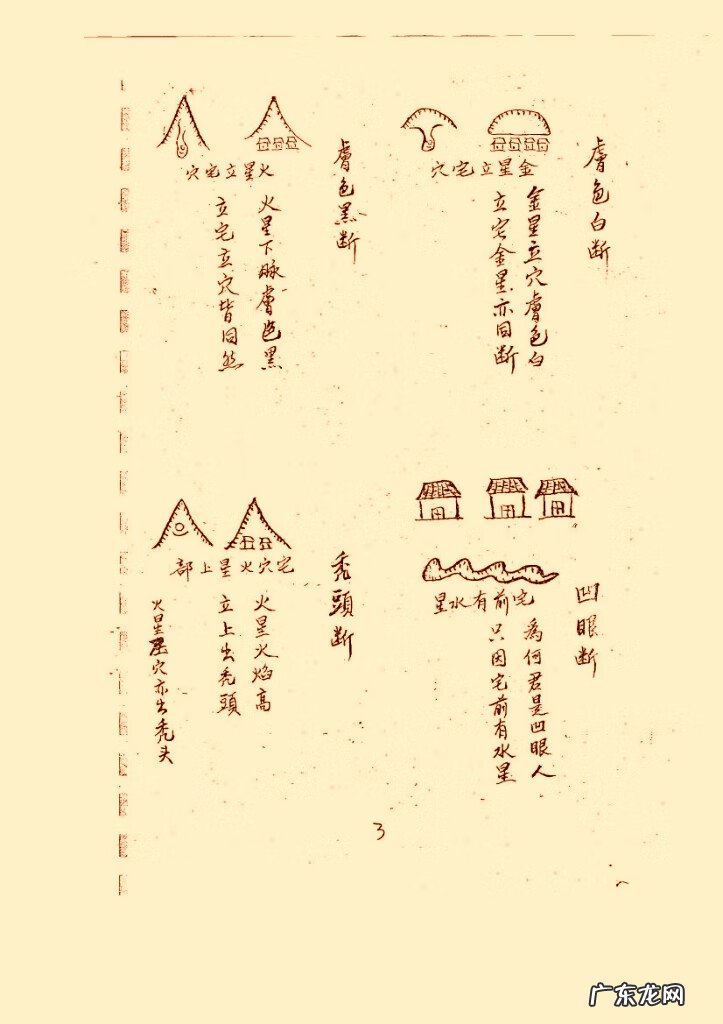 膚色白断
金星立宅穴
金星立穴膚色白
立宅金星亦同断
膚色黑断
火星立宅穴
火星下脉膚色黑
立宅立穴皆同然
凹眼断
宅前有水星
為何君是凹眼人
只因宅前有水星
秃頭断
宅穴火星上部
火星火焰高
立上出秃頭
火星穴亦出秃头
3
广东龙网